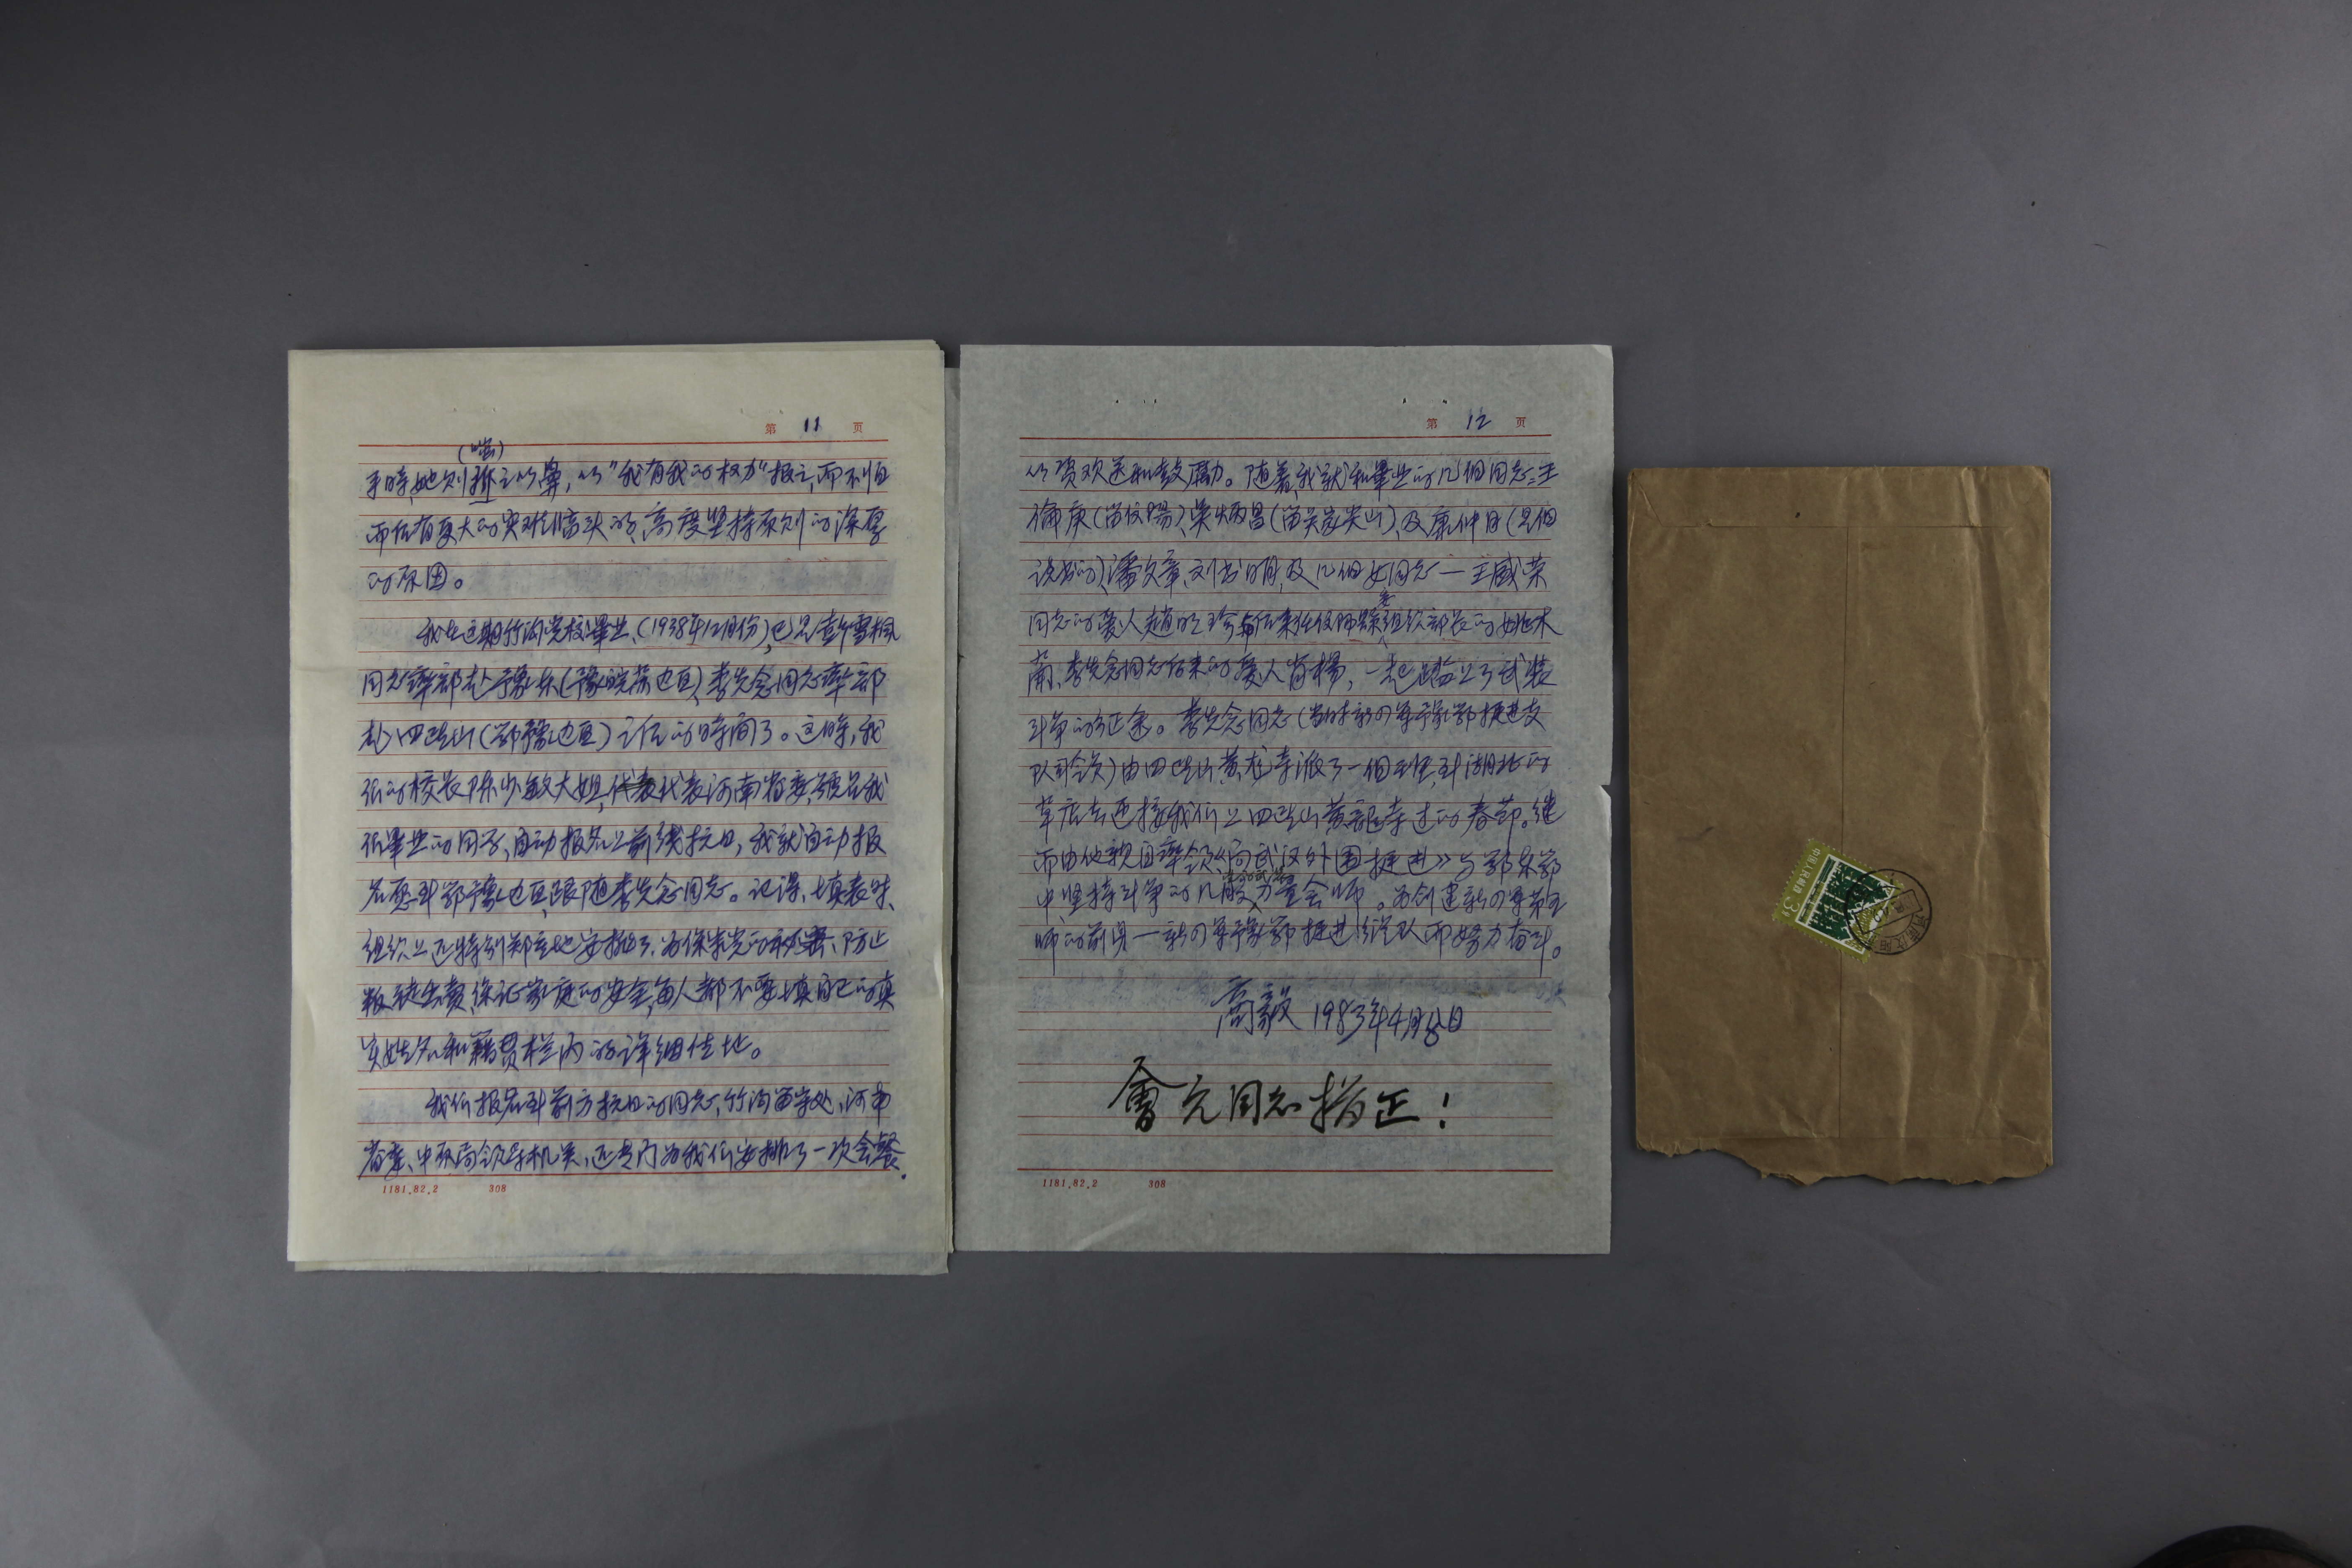 第 11 页
(嗤)
手时,她则 之以鼻,以"我有我的权力"报之,而不怕
而 有更大的灾难临头的、高度坚持原则的深厚
的原因。
我在这期竹沟党校毕业,(1938年12月份),已是彭雪枫
同志率部赴豫东(豫皖苏边区)、李先念同志率部
赴四望山(鄂豫边区)之后的时间了。这时,我
们的校长陈少敏大姐,代表河南省委,号召我
们毕业的同学,自动报名上前线抗日,我就自动报
名愿到鄂豫边区,跟随李先念同志。记得,填表时,
组织上还特别郑重地安排了,为保守党的秘密、防止
叛徒出卖,保证家庭的安全,每人都不要填自己的真
实姓名和籍贯栏内的详细住址。
我们报名到前方抗日的同志,竹沟留守处、河南
省委、中原局领导机关,还专门为我们安排了一次会餐,
1181.82.2 308
第 12 页
以资欢送和鼓励。随着,我就和毕业的几个同志:王
庚(当 阳)、 炳昌(当 山)、及 仲 (是个
说书的)、潘文章、刘书明,及几个女同志—王盛荣
同志的爱人赵 珍、后来任 师 委组织部长的 木
兰、李先念同志后来的爱人尚 ,一起踏上了武装
斗争的征途。李先念同志(当时新四军豫鄂挺进支
队司令员)由四望山黄龙寺派了一个 到湖北的
草店去迎接我们上四望山黄龙寺过的春节。继
而由他亲自率领《向武汉外围挺进》与鄂东鄂
中坚持斗争的几股 力量会师。为创建新四军第五
师的前身—新四军豫鄂挺进纵队而努力奋斗。
高毅 1983年4月8日
会元同志指正!
1181.82.2 308
中国人民邮政
3分